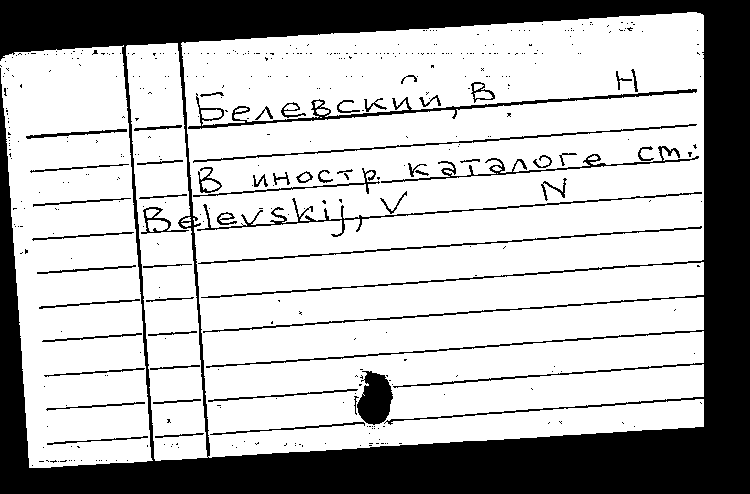 Белевский, В Н
В иностр. каталоге см.:
Belevskij, V N